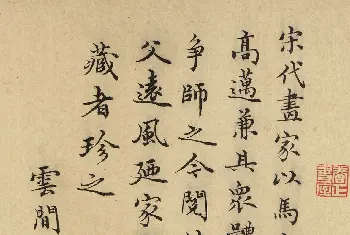 宋代畫家以馬
高邁兼其衆體
爭師之今閱
父遠風廼家
藏者珍之
雲閒